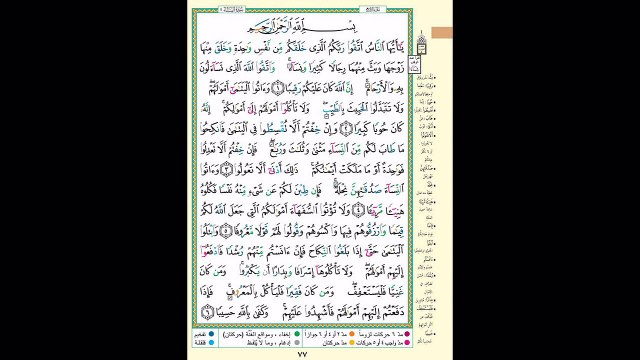 بِسْمِ اللَّهِ الرَّحْمَٰنِ الرَّحِيمِ
يَٰٓأَيُّهَا ٱلنَّاسُ ٱتَّقُوا۟ رَبَّكُمُ ٱلَّذِى خَلَقَكُم مِّن نَّفْسٍ وَٰحِدَةٍ وَخَلَقَ مِنْهَا
زَوْجَهَا وَبَثَّ مِنْهُمَا رِجَالًا كَثِيرًا وَنِسَآءً ۚ وَٱتَّقُوا۟ ٱللَّهَ ٱلَّذِى تَسَآءَلُونَ
بِهِۦ وَٱلْأَرْحَامَ ۚ إِنَّ ٱللَّهَ كَانَ عَلَيْكُمْ رَقِيبًا ١ وَءَاتُوا۟ ٱلْيَتَٰمَىٰٓ أَمْوَٰلَهُمْ ۖ
وَلَا تَتَبَدَّلُوا۟ ٱلْخَبِيثَ بِٱلطَّيِّبِ ۖ وَلَا تَأْكُلُوٓا۟ أَمْوَٰلَهُمْ إِلَىٰٓ أَمْوَٰلِكُمْ ۚ إِنَّهُۥ
كَانَ حُوبًا كَبِيرًا ٢ وَإِنْ خِفْتُمْ أَلَّا تُقْسِطُوا۟ فِى ٱلْيَتَٰمَىٰ فَٱنكِحُوا۟
مَا طَابَ لَكُم مِّنَ ٱلنِّسَآءِ مَثْنَىٰ وَثُلَٰثَ وَرُبَٰعَ ۖ فَإِنْ خِفْتُمْ أَلَّا تَعْدِلُوا۟
فَوَٰحِدَةً أَوْ مَا مَلَكَتْ أَيْمَٰنُكُمْ ۚ ذَٰلِكَ أَدْنَىٰٓ أَلَّا تَعُولُوا۟ ٣ وَءَاتُوا۟
ٱلنِّسَآءَ صَدُقَٰتِهِنَّ نِحْلَةً ۚ فَإِن طِبْنَ لَكُمْ عَن شَىْءٍ مِّنْهُ نَفْسًا فَكُلُوهُ
هَنِيٓـًٔا مَّرِيٓـًٔا ٤ وَلَا تُؤْتُوا۟ ٱلسُّفَهَآءَ أَمْوَٰلَكُمُ ٱلَّتِى جَعَلَ ٱللَّهُ لَكُمْ
قِيَٰمًا وَٱرْزُقُوهُمْ فِيهَا وَٱكْسُوهُمْ وَقُولُوا۟ لَهُمْ قَوْلًا مَّعْرُوفًا ٥ وَٱبْتَلُوا۟
ٱلْيَتَٰمَىٰ حَتَّىٰٓ إِذَا بَلَغُوا۟ ٱلنِّكَاحَ فَإِنْ ءَانَسْتُم مِّنْهُمْ رُشْدًا فَٱدْفَعُوٓا۟
إِلَيْهِمْ أَمْوَٰلَهُمْ ۖ وَلَا تَأْكُلُوهَآ إِسْرَافًا وَبِدَارًا أَن يَكْبَرُوا۟ ۚ وَمَن كَانَ
غَنِيًّا فَلْيَسْتَعْفِفْ ۖ وَمَن كَانَ فَقِيرًا فَلْيَأْكُلْ بِٱلْمَعْرُوفِ ۚ فَإِذَا
دَفَعْتُمْ إِلَيْهِمْ أَمْوَٰلَهُمْ فَأَشْهِدُوا۟ عَلَيْهِمْ ۚ وَكَفَىٰ بِٱللَّهِ حَسِيبًا ٦
مدّ ٦ حركات لزوماً مدّ ٢ أو ٤ أو ٦ جوازاً إخفاء، ومواقع الغنّة (حركتان) تفخيم
مدّ واجب ٤ أو ٥ حركات مدّ حركتان إدغام، وما لا يُلفظ قلقلة
٧٧